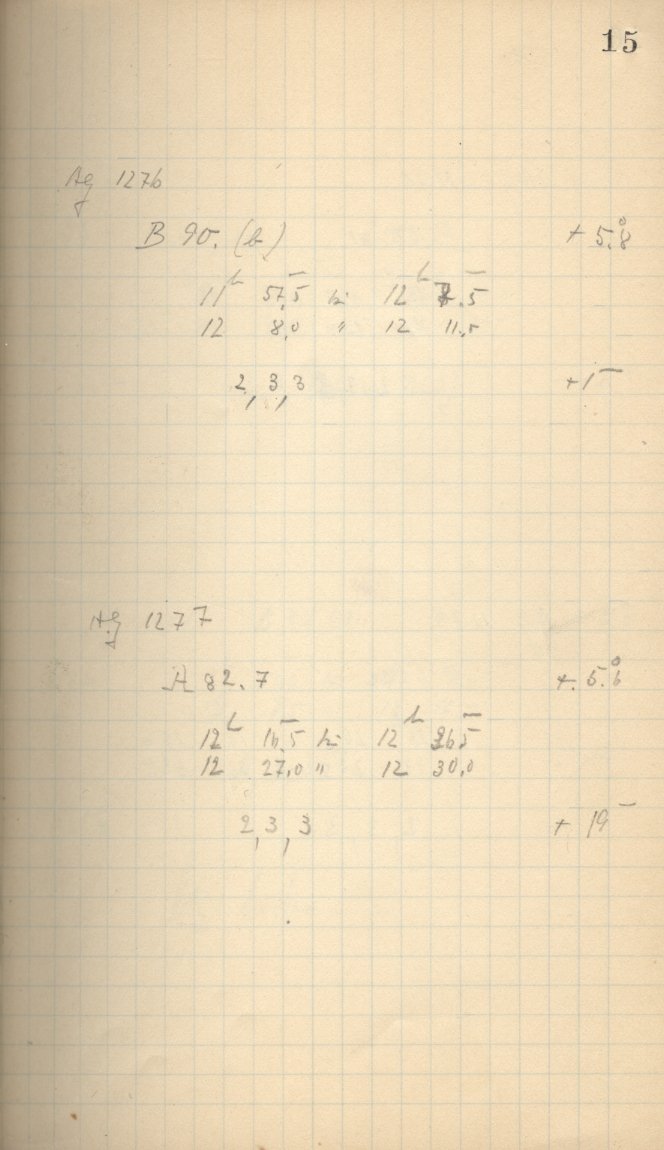 15
Ag 1276
B 90. (b) + 5.°8
11h 57,5 bis 12h 7.5
12 8,0 " 12 11,5
2, 3, 3 + 1
Ag 1277
A 82.7 + 5.°6
12h 16,5 bis 12h 26,5
12 27,0 " 12 30,0
2, 3, 3 + 19